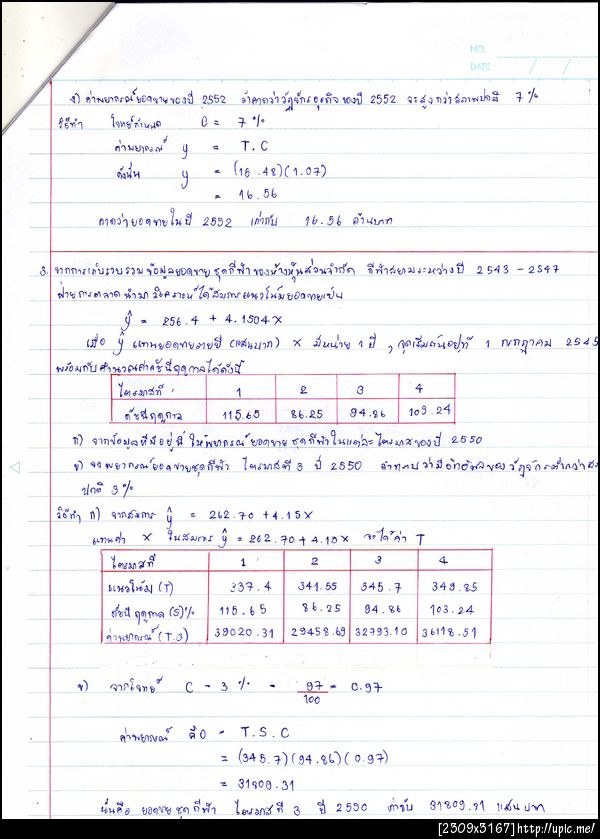 NO.
DATE / /
ง) ค่าพยากรณ์ยอดขายของปี 2552 ถ้าคาดว่าวัฏจักรธุรกิจของปี 2552 จะสูงกว่าสภาพปกติ 7 %
วิธีทำ โจทย์กำหนด C = 7 %
ค่าพยากรณ์ y = T.C
ดังนั้น y = (15.48)(1.07)
= 16.56
คาดว่ายอดขายในปี 2552 เท่ากับ 16.56 ล้านบาท
3. จากการเก็บรวบรวมข้อมูลยอดขายชุดกีฬาของห้างหุ้นส่วนจำกัด ระหว่างปี 2543 - 2547
ฝ่ายการตลาดนำมาวิเคราะห์ได้สมการแนวโน้มยอดขายเป็น
ŷ = 256.4 + 4.1504X
เมื่อ ŷ แทนยอดขายรายปี (แสนบาท) X มีหน่วย 1 ปี , จุดเริ่มต้นอยู่ที่ 1 กรกฎาคม 2545
พร้อมกับคำนวณค่าดัชนีฤดูกาลได้ดังนี้
ไตรมาสที่ 1 2 3 4
ดัชนีฤดูกาล 115.65 86.25 94.86 103.24
ก) จากข้อมูลที่มีอยู่นี้ ให้พยากรณ์ยอดขายชุดกีฬาในแต่ละไตรมาสของปี 2550
ข) จงพยากรณ์ยอดขายชุดกีฬา ไตรมาสที่ 3 ปี 2550 ถ้าทราบว่ามีอิทธิพลของวัฏจักรต่ำกว่า
ปกติ 3 %
วิธีทำ ก) จากสมการ ŷ = 262.70 + 4.15X
แทนค่า X ในสมการ ŷ = 262.70 + 4.15X จะได้ค่า T
ไตรมาสที่ 1 2 3 4
แนวโน้ม (T) 337.4 341.55 345.7 349.85
ดัชนีฤดูกาล (S)% 115.65 86.25 94.86 103.24
ค่าพยากรณ์ (T.S) 39020.31 29458.69 32793.10 36118.51
ข) จากโจทย์ C = 3 % = 97/100 = 0.97
ค่าพยากรณ์ คือ = T.S.C
= (345.7)(94.86)(0.97)
= 31809.31
นั่นคือ ยอดขายชุดกีฬา ไตรมาสที่ 3 ปี 2550 เท่ากับ 31809.31 แสนบาท
[2309x3167]http://upic.me/